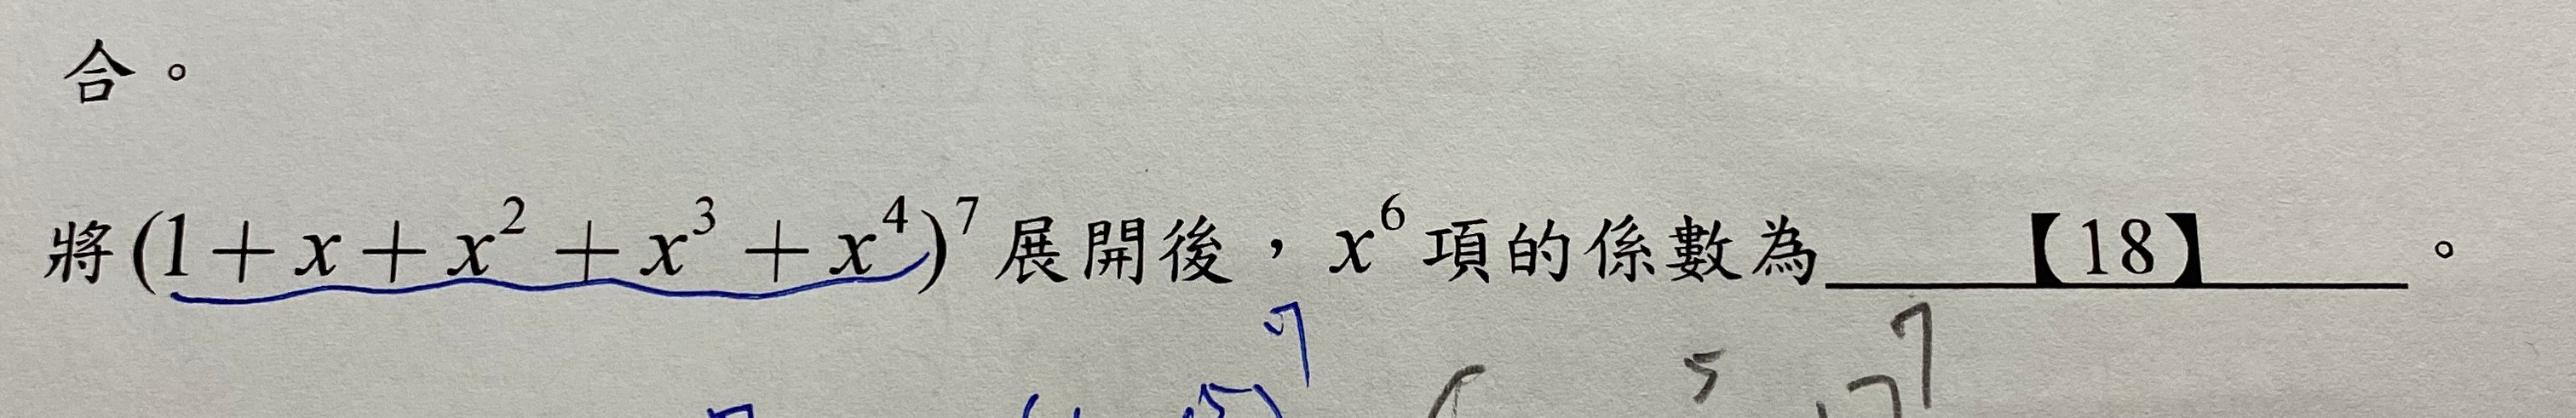 合。
將(1+x+x²+x³+x⁴)⁷展開後，x⁶項的係數為【18】。
7 5 7